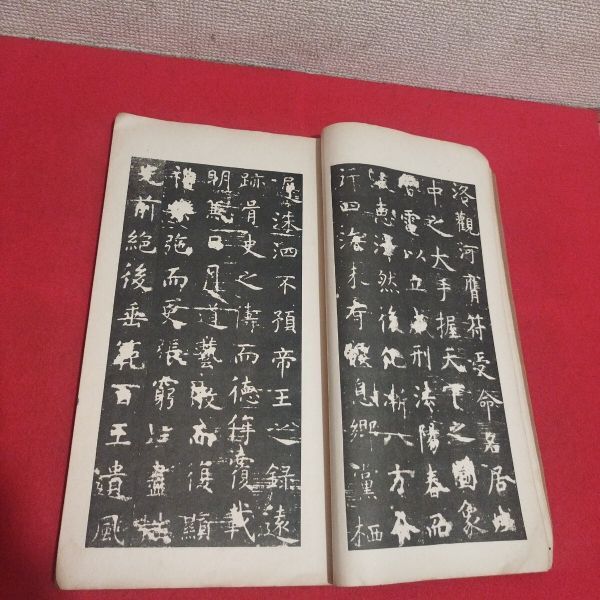 洛觀河膺符受命名居
中之大手握天下之圖象
電以立威刑法陽春而
惠澤然後化漸八方令
行四海未有息鄉黨栖
遲洙泗不預帝王之錄遠
跡胥史之儔而德侔覆載
明日月道藝微而復顯
禮弛而更張窮盡
光前絕後垂範百王遺風